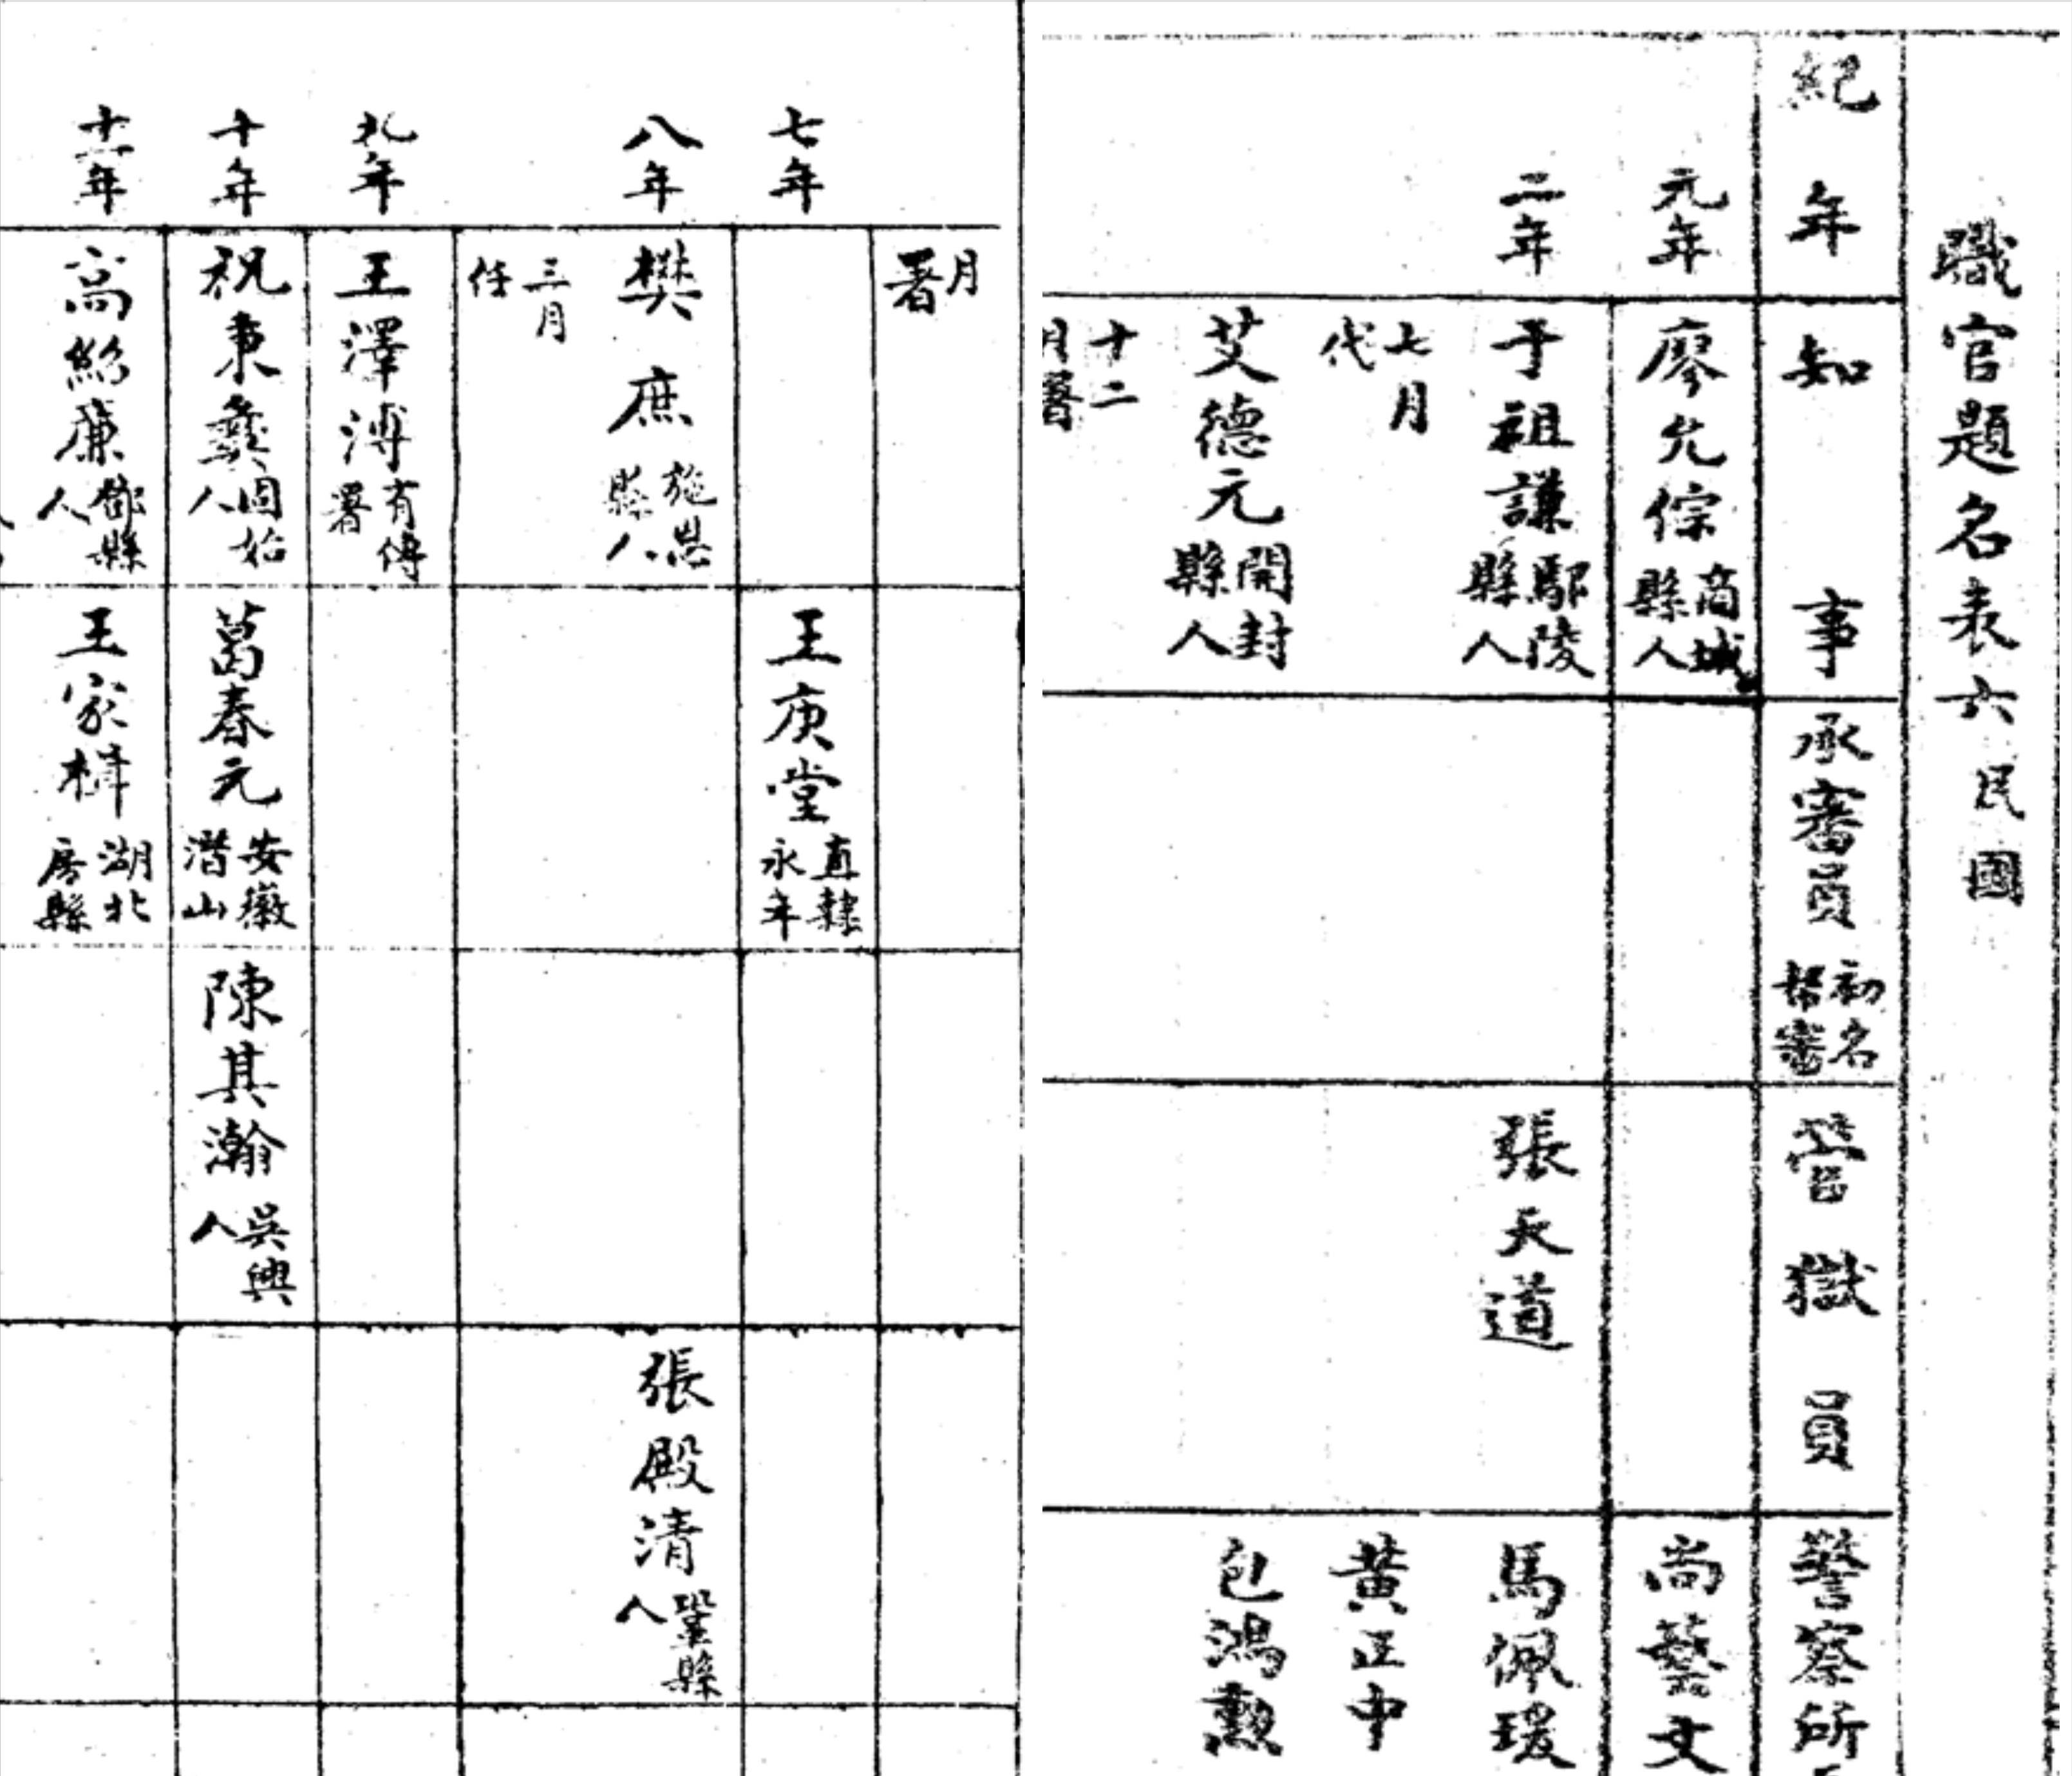 職官題名表六民國
紀年
知事
承審員初名幫審
管獄員
警察所
元年
廖允倧商城縣人
尚藝文
二年
于祖謙鄢陵縣人
張天道
馬佩瑗
七月代
黄正中
艾德元開封縣人
包鴻勲
十二月署
月署
七年
王庚堂直隸永年
八年
樊庶施恩縣人
張殿清鞏縣人
三月任
九年
王澤溥有傳署
十年
祝秉彝固始人
葛春元安徽潛山
陳其瀚吳興人
十一年
高廉鄧縣人
王家楫湖北房縣